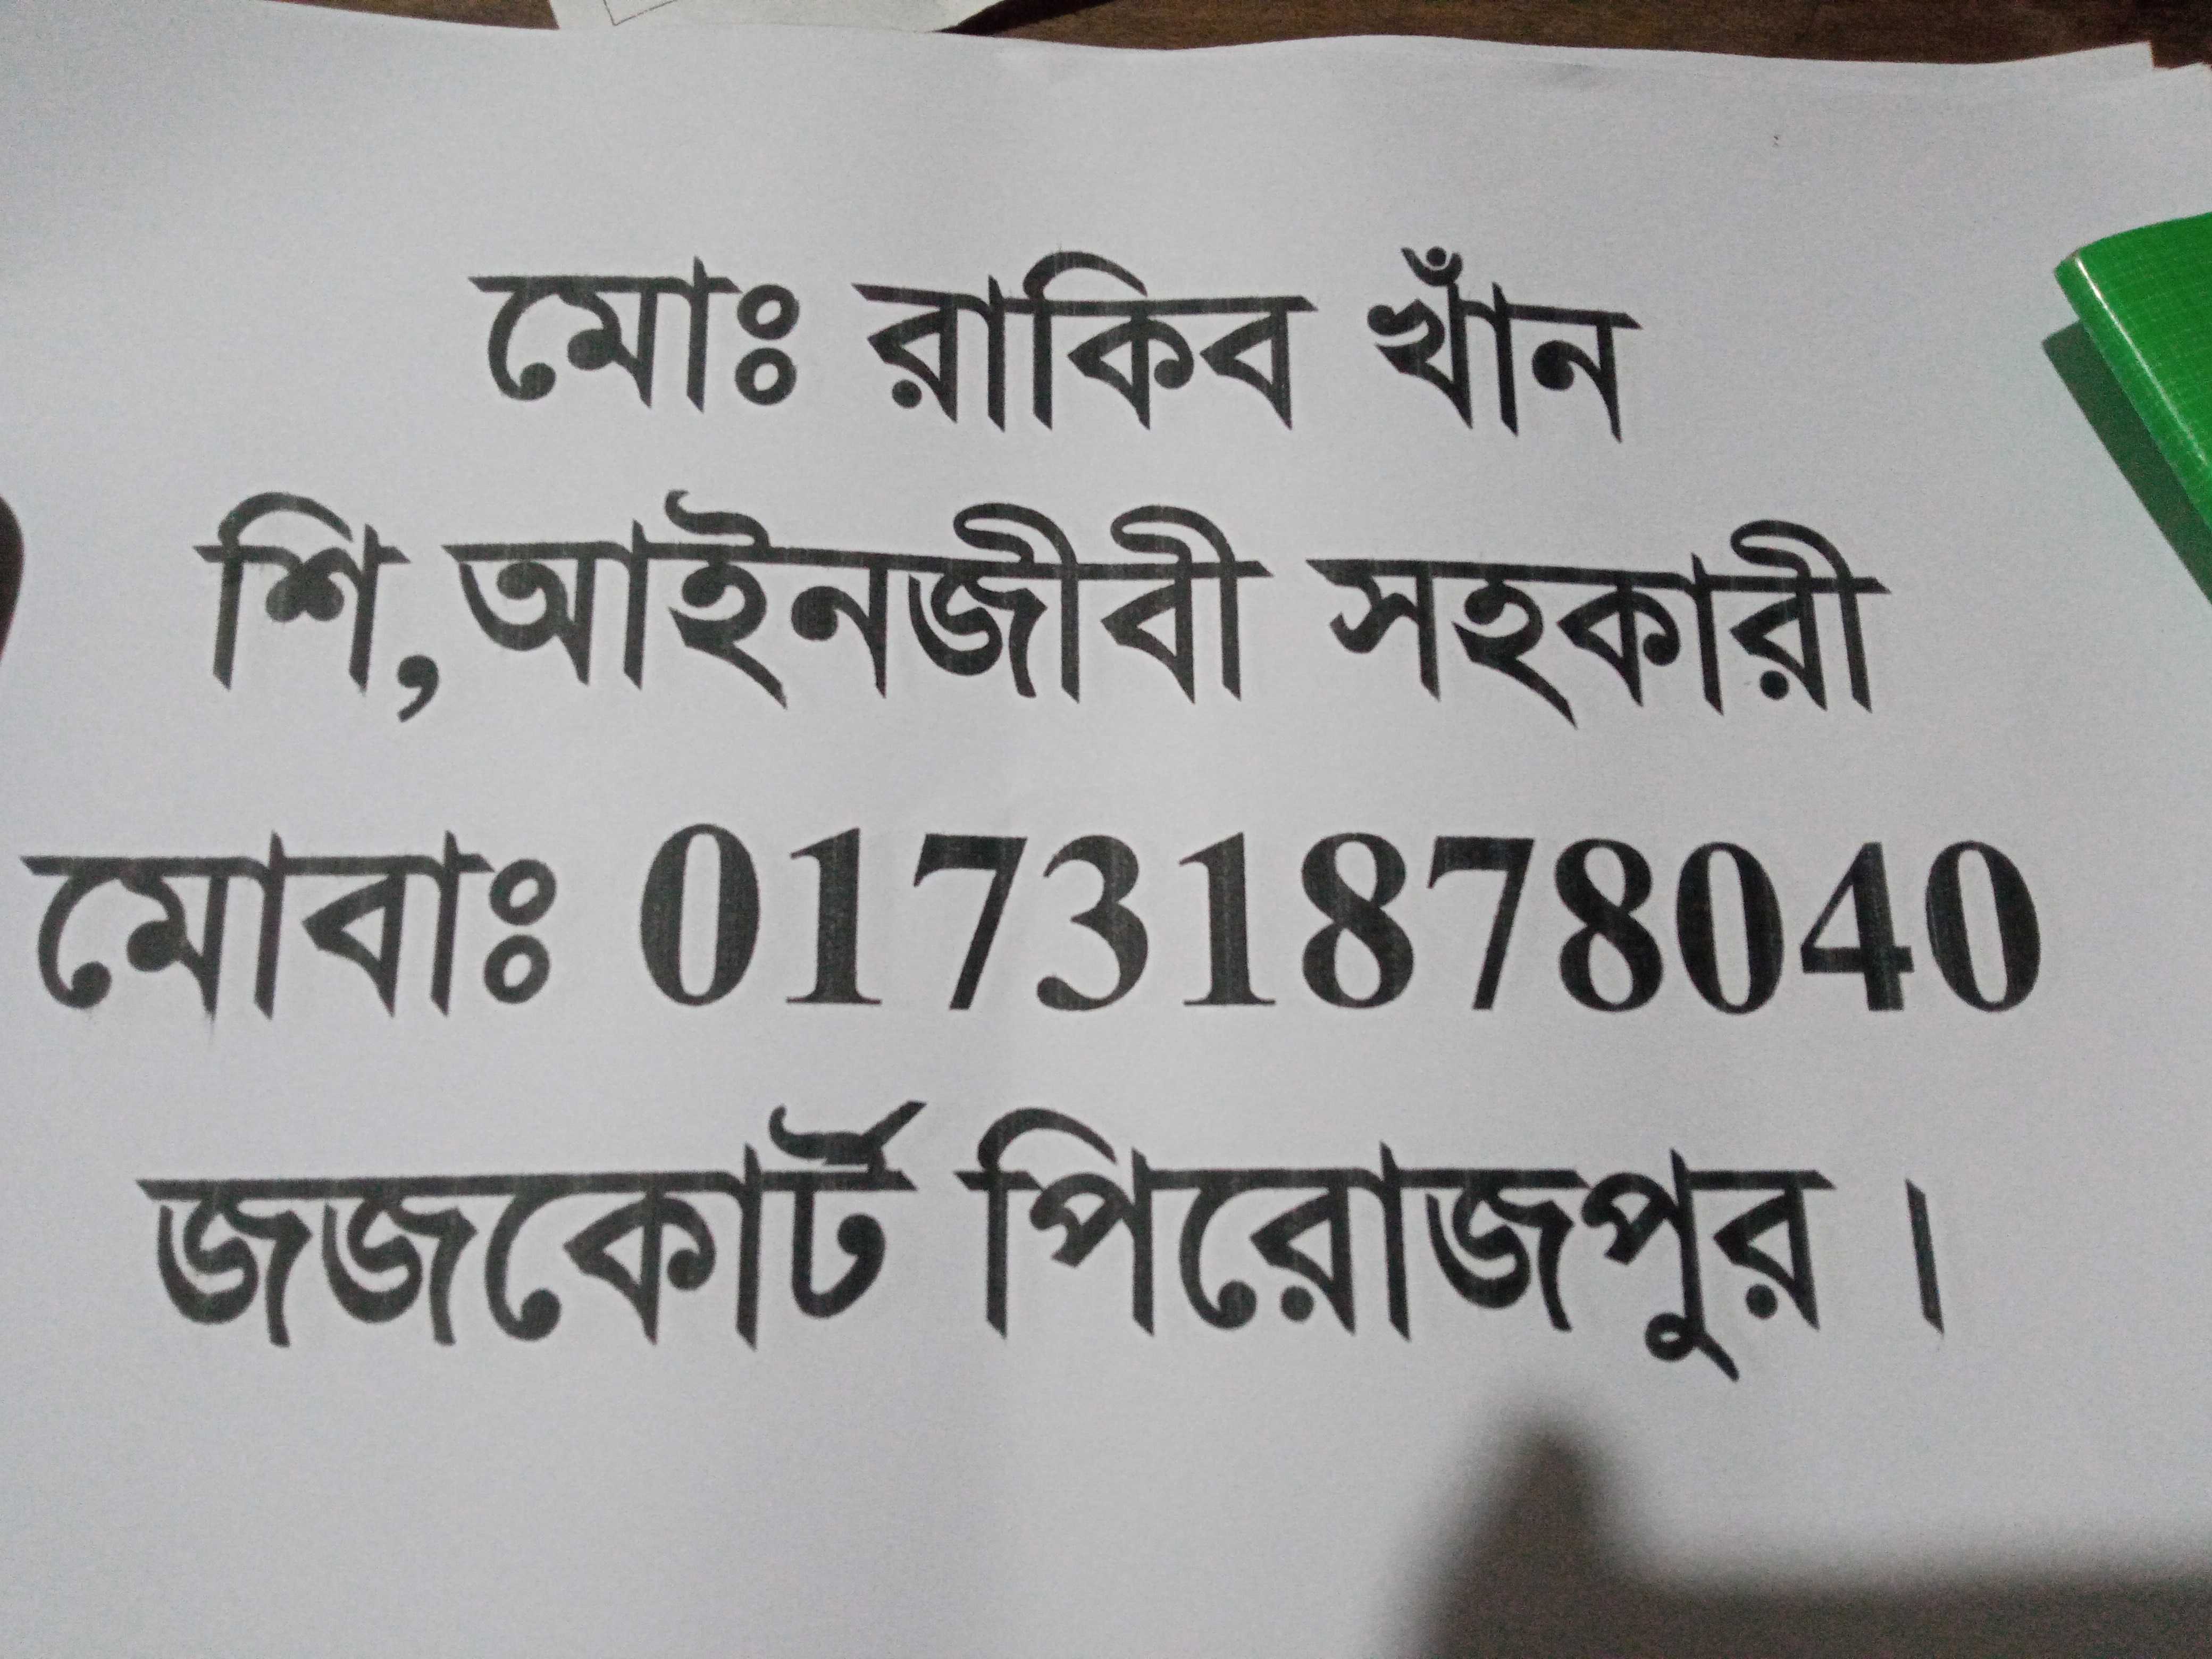 মোঃ রাকিব খাঁন
শি,আইনজীবী সহকারী
মোবাঃ 01731878040
জজকোর্ট পিরোজপুর ।